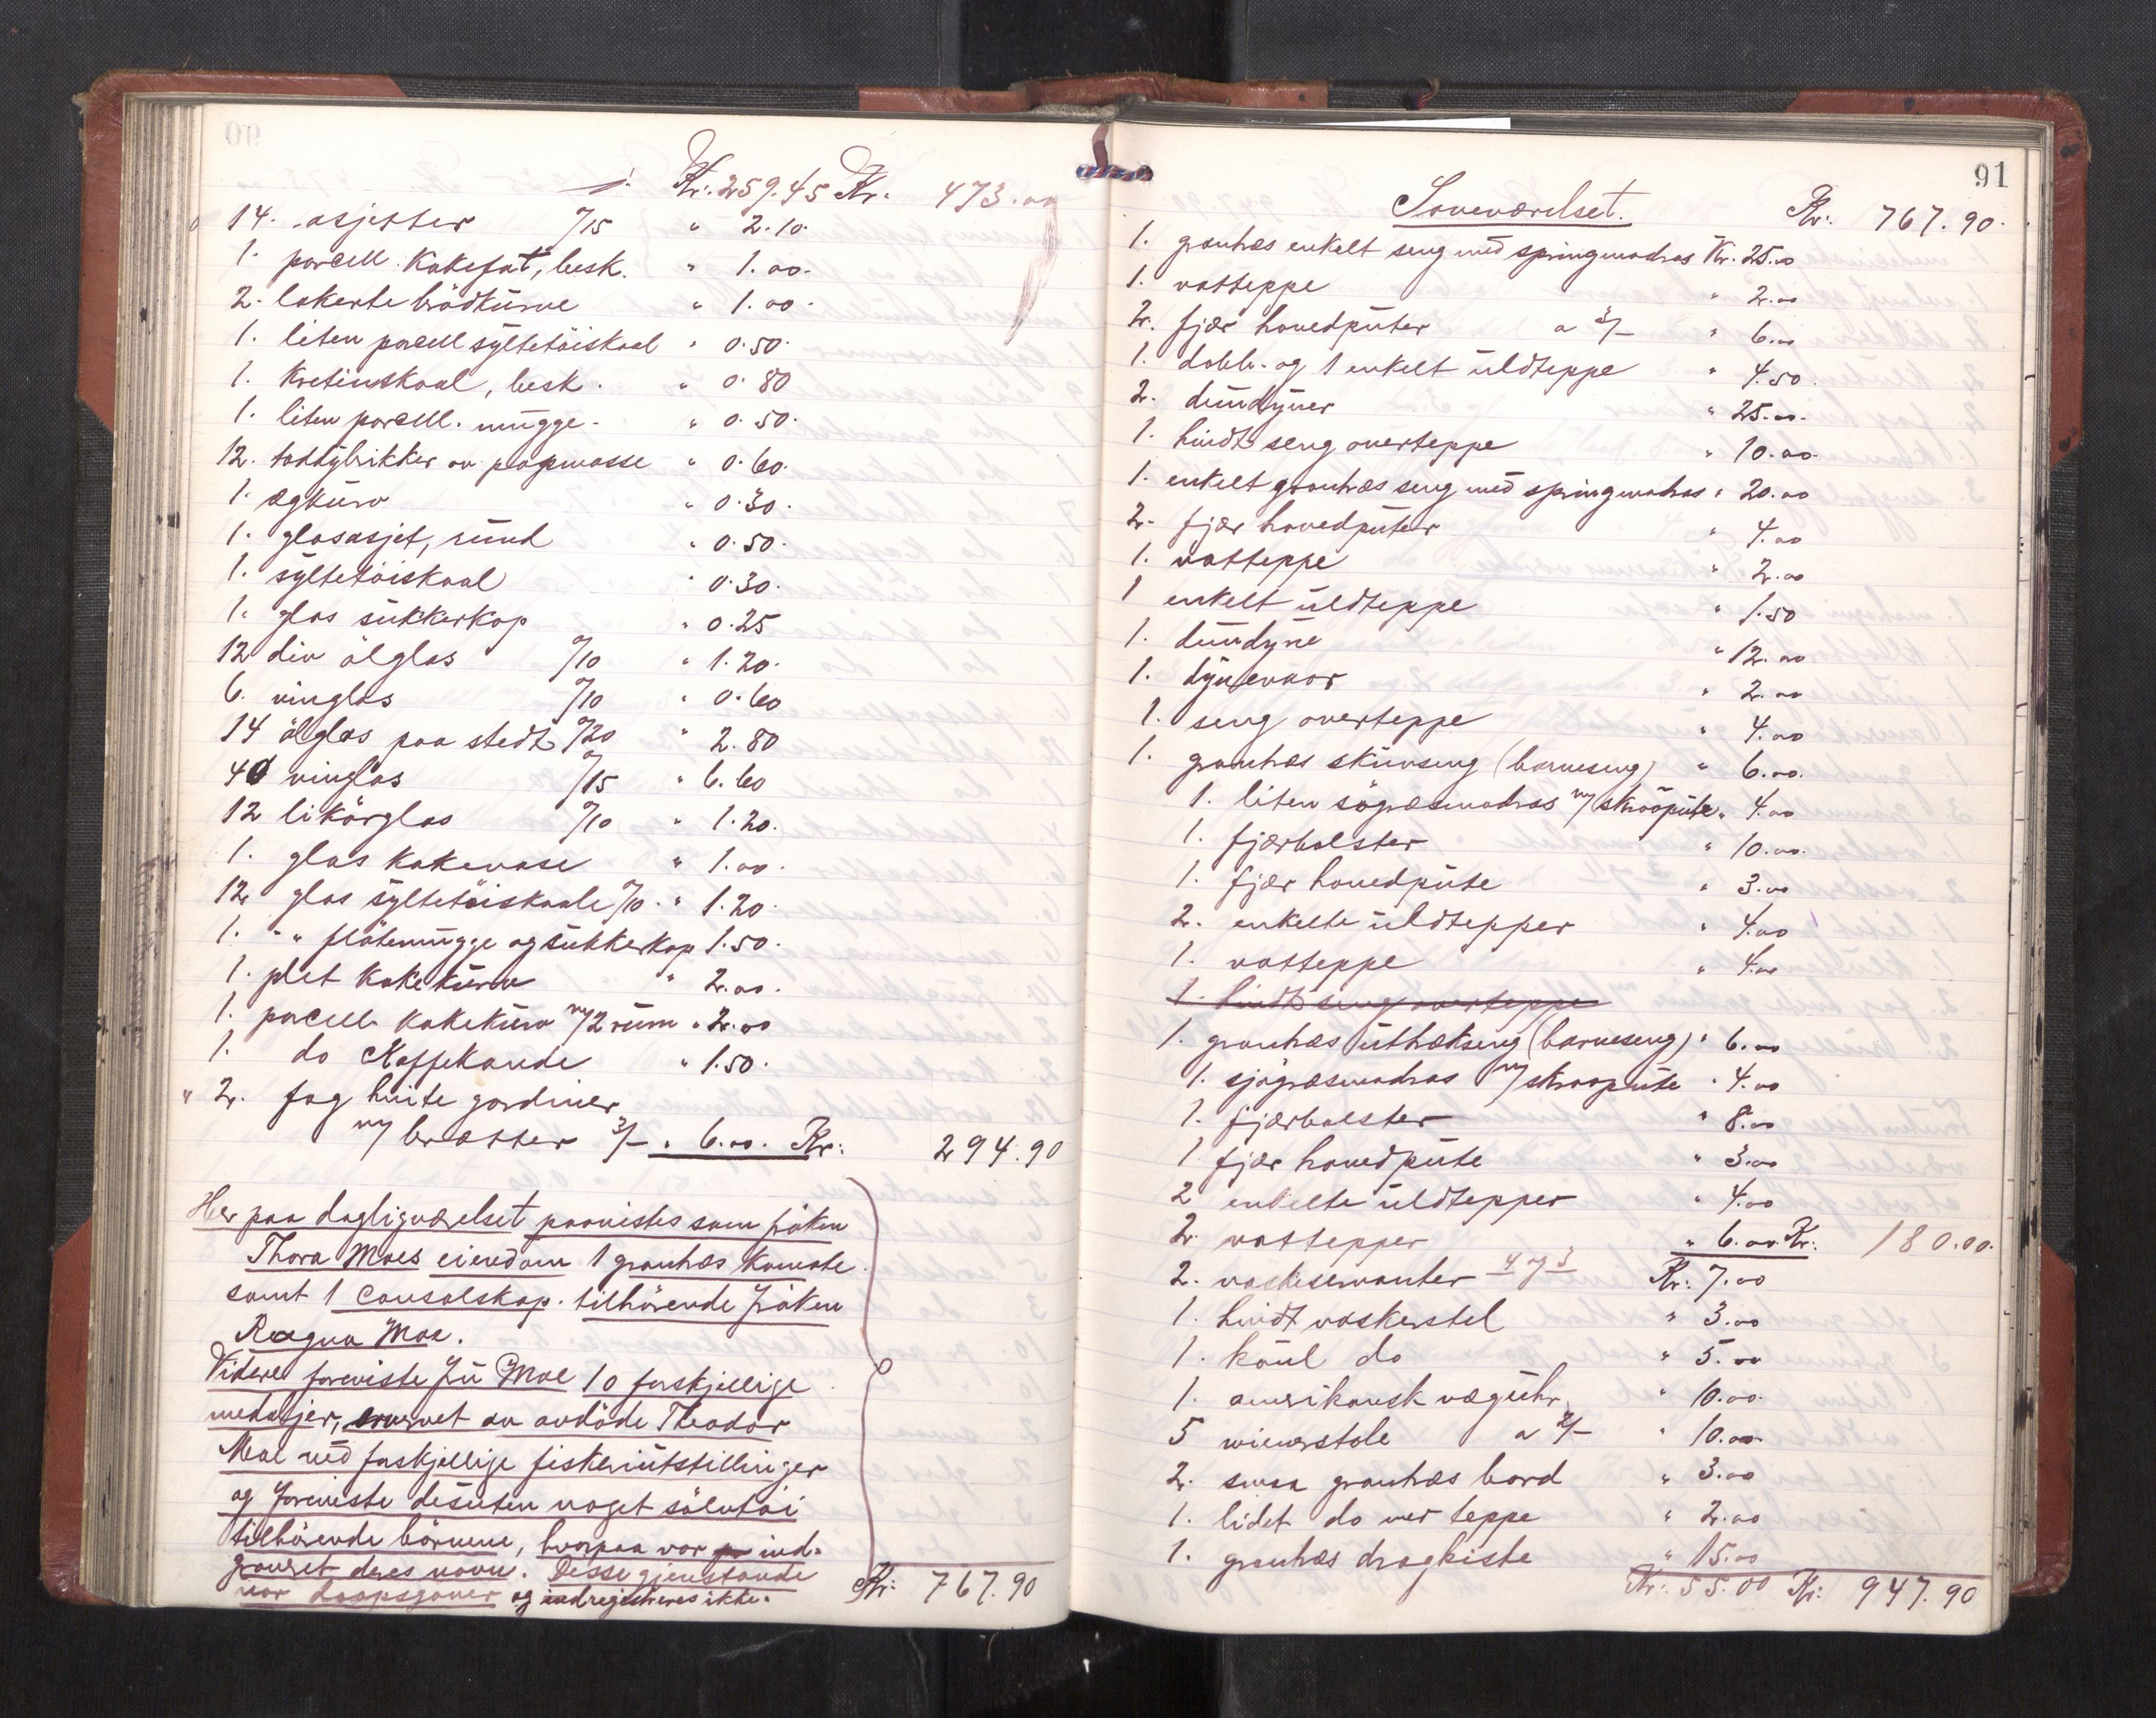 Kr. 259.45 Kr. 473.00
14. asjetter a/15 " 2.10.
1. porcell. Kakefat, besk. " 1.00.
2. lakerte brödkurve " 1.00.
1. liten porcell syltetöiskaal " 0.50.
1. Kretinskaal, besk. " 0.80
1. liten porcell. mugge. " 0.50.
12. toddybrikker av papmasse " 0.60.
1. ægkurv " 0.30.
1. glasasjet, rund " 0.50.
1. syltetöiskaal " 0.30.
1. glas sukkerkop " 0.25
12 div ölglas a/10 " 1.20.
6. vinglas a/10 " 0.60
14 ölglas paa stedt a/20 " 2.80
40 vinglas a/15 " 6.60
12 likörglas a/10 " 1.20.
1. glas Kakevase " 1.00.
12 glas syltetöiskaale a/10. " 1.20.
1. " flötemugge og sukkerkop 1.50.
1. plet Kakekurv " 2.00.
1. porcell. Kakekurv m/2 rum " 2.00
1. do Kaffekande " 1.50.
" 2. fag hvite gardiner
m/ brætter 3/- " 6.00. Kr: 294.90
Her paa dagligværelset paavistes som fröken
Thora Moes eiendom 1 grantræs Komode
samt 1 Consolskap. tilhörende fröken
Ragna Moe.
Videre foreviste fru Moe 10 forskjellige
medaljer, ervervet av avdöde Theodor
Moe ved forskjellige fiskeriutstillinger
og foreviste desuten noget sölvtöi
tilhörende börnene, hvorpaa var ind-
gravert deres navn. Disse gjenstande
var daapsgaver og indregistreres ikke. Kr: 767.90
91
Soveværelset. Kr: 767.90.
1. grantræs enkelt seng med springmadras Kr. 25.00
1. vatteppe " 2.00
2. fjær hovedputer a 3/- " 6.00
1. dobb. og 1 enkelt uldteppe " 4.50.
2. dundyner " 25.00.
1. hvidt seng overteppe " 10.00.
1. enkelt grantræs seng med springmadras " 20.00
2. fjær hovedputer " 4.00
1. vatteppe " 2.00
1 enkelt uldteppe " 1.50
1. dundyne " 12.00
1. dynevaar " 2.00
1. seng overteppe " 4.00
1. grantræs skuvseng (barneseng) " 6.00.
1. liten sögræsmadras m/ skraapute " 4.00
1. fjærbolster " 10.00.
1. fjær hovedpute " 3.00
2. enkelte uldtepper " 4.00
1. vatteppe " 4.00
1. hvidt seng overteppe
1. grantræs uttrækseng (barneseng) " 6.00
1. sjögræsmadras m/ skraapute " 4.00
1. fjærbolster " 8.00
1 fjær hovedpute " 3.00
2 enkelte uldtepper " 4.00
2. vattepper " 6.00. Kr: 180.00.
2. vaskeservanter 4 og 3 Kr: 7.00
1. hvidt vaskerstel " 3.00
1. koul do " 5.00
1. amerikansk væguhr " 10.00.
5 wienerstole a 2/- " 10.00
2. smaa grantræs bord " 3.00
1. lidet do mer teppe " 2.00
1. grantræs dragkiste " 15.00
Kr: 55.00 Kr: 947.90